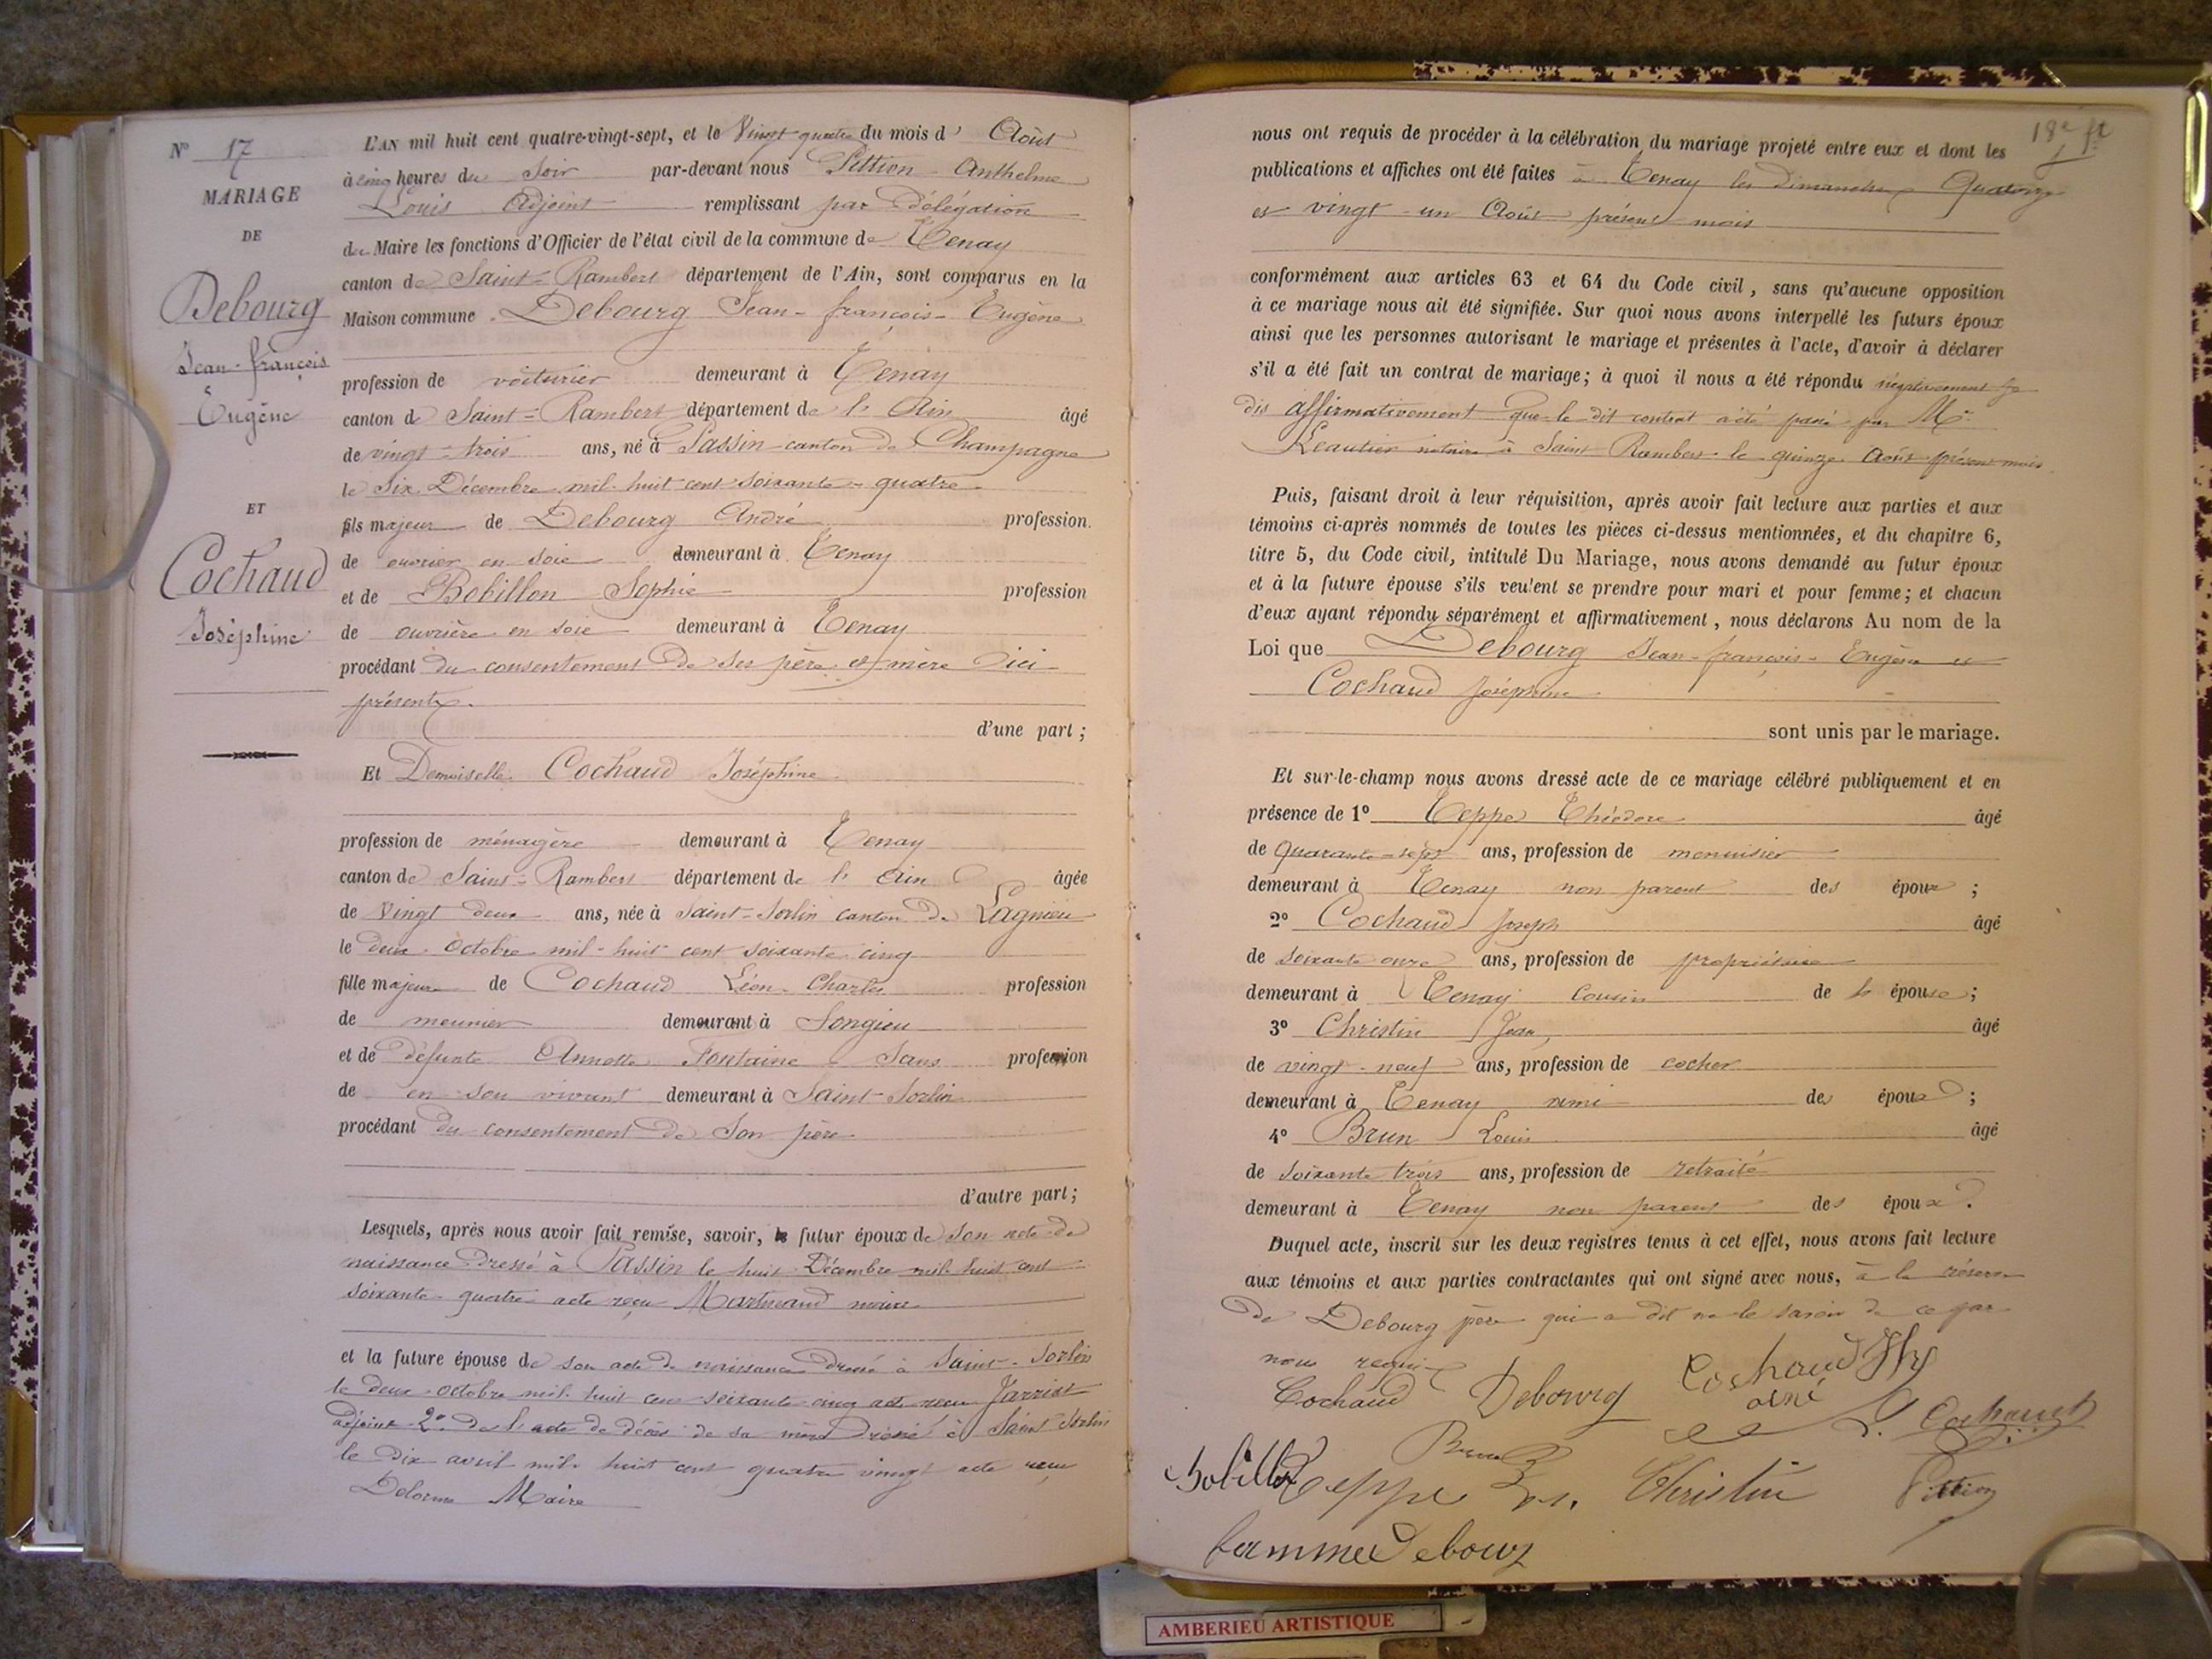 N° 17
MARIAGE
DE
Debourg
Jean-françois
Eugène
ET
Cochaud
Joséphine
L'AN mil huit cent quatre-vingt-sept, et le Vingt quatre du mois d' Août
à cinq heures du Soir par-devant nous Pittion Anthelme
Louis Adjoint remplissant par délégation
du Maire les fonctions d'Officier de l'état civil de la commune de Tenay
canton de Saint-Rambert département de l'Ain, sont comparus en la
Maison commune Debourg Jean-françois-Eugène
profession de voiturier demeurant à Tenay
canton de Saint-Rambert département de l'Ain âgé
de vingt-trois ans, né à Passin canton de Champagne
le Six Décembre mil huit cent soixante-quatre
fils majeur de Debourg André profession
de ouvrier en soie demeurant à Tenay
et de Bobillon Sophie profession
de ouvrière en soie demeurant à Tenay
procédant du consentement de ses père et mère ici
présents.
d'une part ;
Et Demoiselle Cochaud Joséphine
profession de ménagère demeurant à Tenay
canton de Saint-Rambert département de l'Ain âgée
de Vingt deux ans, née à Saint-Sorlin canton de Lagnieu
le deux Octobre mil-huit cent soixante cinq
fille majeure de Cochaud Léon-Charles profession
de meunier demeurant à Songieu
et de défunte Annette Fontaine Sans profession
de en son vivant demeurant à Saint-Sorlin
procédant du consentement de Son père
d'autre part ;
Lesquels, après nous avoir fait remise, savoir, le futur époux de son acte de
naissance dressé à Passin le huit Décembre mil huit cent
soixante-quatre acte reçu maire
et la future épouse de son acte de naissance dressé à Saint-Sorlin
le deux octobre mil huit cent soixante cinq acte reçu
adjoint 2° de l'acte de décès de sa mère dressé à Saint Sorlin
le dix avril mil huit cent quatre vingt acte reçu
Delorme Maire
18e ft
nous ont requis de procéder à la célébration du mariage projeté entre eux et dont les
publications et affiches ont été faites à Tenay les dimanches Quatorze
et vingt-un Août présent mois
conformément aux articles 63 et 64 du Code civil, sans qu'aucune opposition
à ce mariage nous ait été signifiée. Sur quoi nous avons interpellé les futurs époux
ainsi que les personnes autorisant le mariage et présentes à l'acte, d'avoir à déclarer
s'il a été fait un contrat de mariage ; à quoi il nous a été répondu négativement
dis affirmativement que le dit contrat a été passé par Me
Leautier notaire à Saint Rambert le quinze Août présent mois
Puis, faisant droit à leur réquisition, après avoir fait lecture aux parties et aux
témoins ci-après nommés de toutes les pièces ci-dessus mentionnées, et du chapitre 6,
titre 5, du Code civil, intitulé Du Mariage, nous avons demandé au futur époux
et à la future épouse s'ils veulent se prendre pour mari et pour femme ; et chacun
d'eux ayant répondu séparément et affirmativement, nous déclarons Au nom de la
Loi que Debourg Jean-françois-Eugène et
Cochaud Joséphine
sont unis par le mariage.
Et sur-le-champ nous avons dressé acte de ce mariage célébré publiquement et en
présence de 1° Teppe Théodore âgé
de quarante-sept ans, profession de menuisier
demeurant à Tenay non parent des époux ;
2° Cochaud Joseph âgé
de soixante onze ans, profession de propriétaire
demeurant à Tenay Cousin de l' épouse ;
3° Christin Jean, âgé
de vingt-neuf ans, profession de cocher
demeurant à Tenay ami des époux ;
4° Brun Louis âgé
de soixante trois ans, profession de retraité
demeurant à Tenay non parent des époux.
Duquel acte, inscrit sur les deux registres tenus à cet effet, nous avons fait lecture
aux témoins et aux parties contractantes qui ont signé avec nous, à la réserve
de Debourg père qui a dit ne le savoir de ce par
nous requis
Cochaud Debourg Cochaud Jh
ainé
L. Cochaud
Brun
bobillon Teppe Christin Pittion
femme Debourg
AMBERIEU ARTISTIQUE